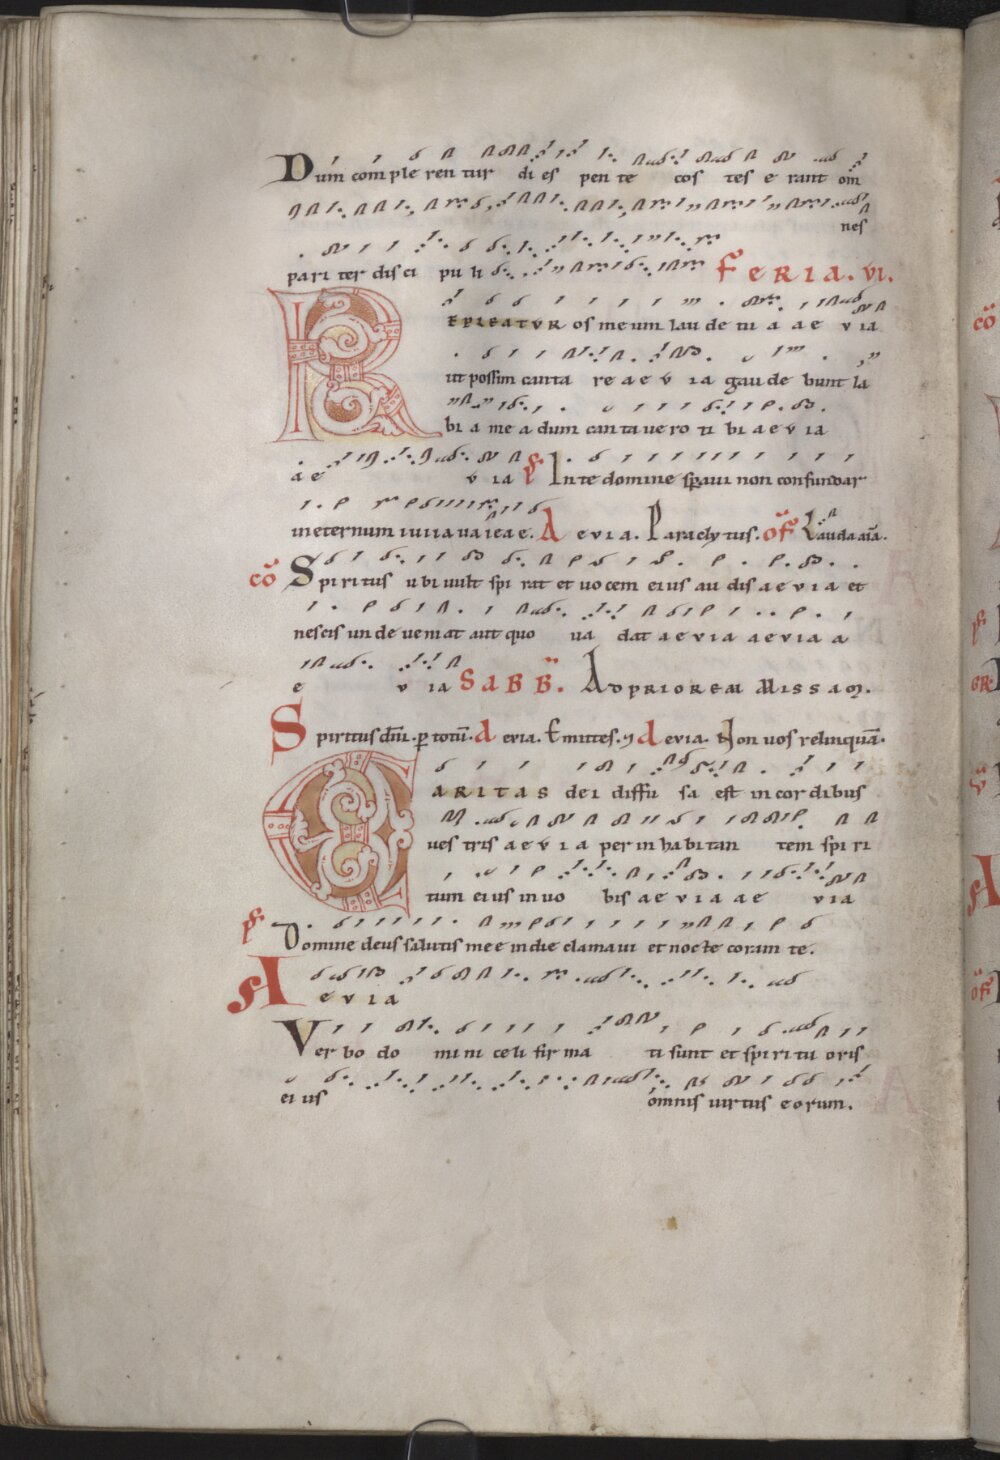 Dum com ple ren tur di es pen te cos tes e rant om
nes
pari ter disci pu li FERIA. VI.
REPLEATVR os meum lau de tu a ae v ia
ut possim canta re a e v ia gau de bunt la
bi a me a dum can ta vero ti bi a e v ia
a e v ia ps In te domine speraui non confundar
in eternum iniusta A evia. Paraclytus. of Lauda aīa.
cō Spiritus ubi uult spi rat et uocem eius au dis a e v i a et
nescis unde ueniat aut quo ua dat a e v i a a e v i a a
e v ia SABB. AD PRIOREM MISSAM.
Spiritus dn̄i. p totū. A evia. Emittes. A evia. Non uos relinquā.
CARITAS dei diffu sa est in cor dibus
ues tris a e v i a per in habitan tem spi ri
tum ei us in uo bis a e v i a a e v i a
ps Domine deus salutis mee in die clamaui et nocte coram te.
A e v i a
Ver bo do mi ni celi fir ma ti sunt et spi ri tu oris
ei us omnis uirtus eorum.
cō
ps
GR
of